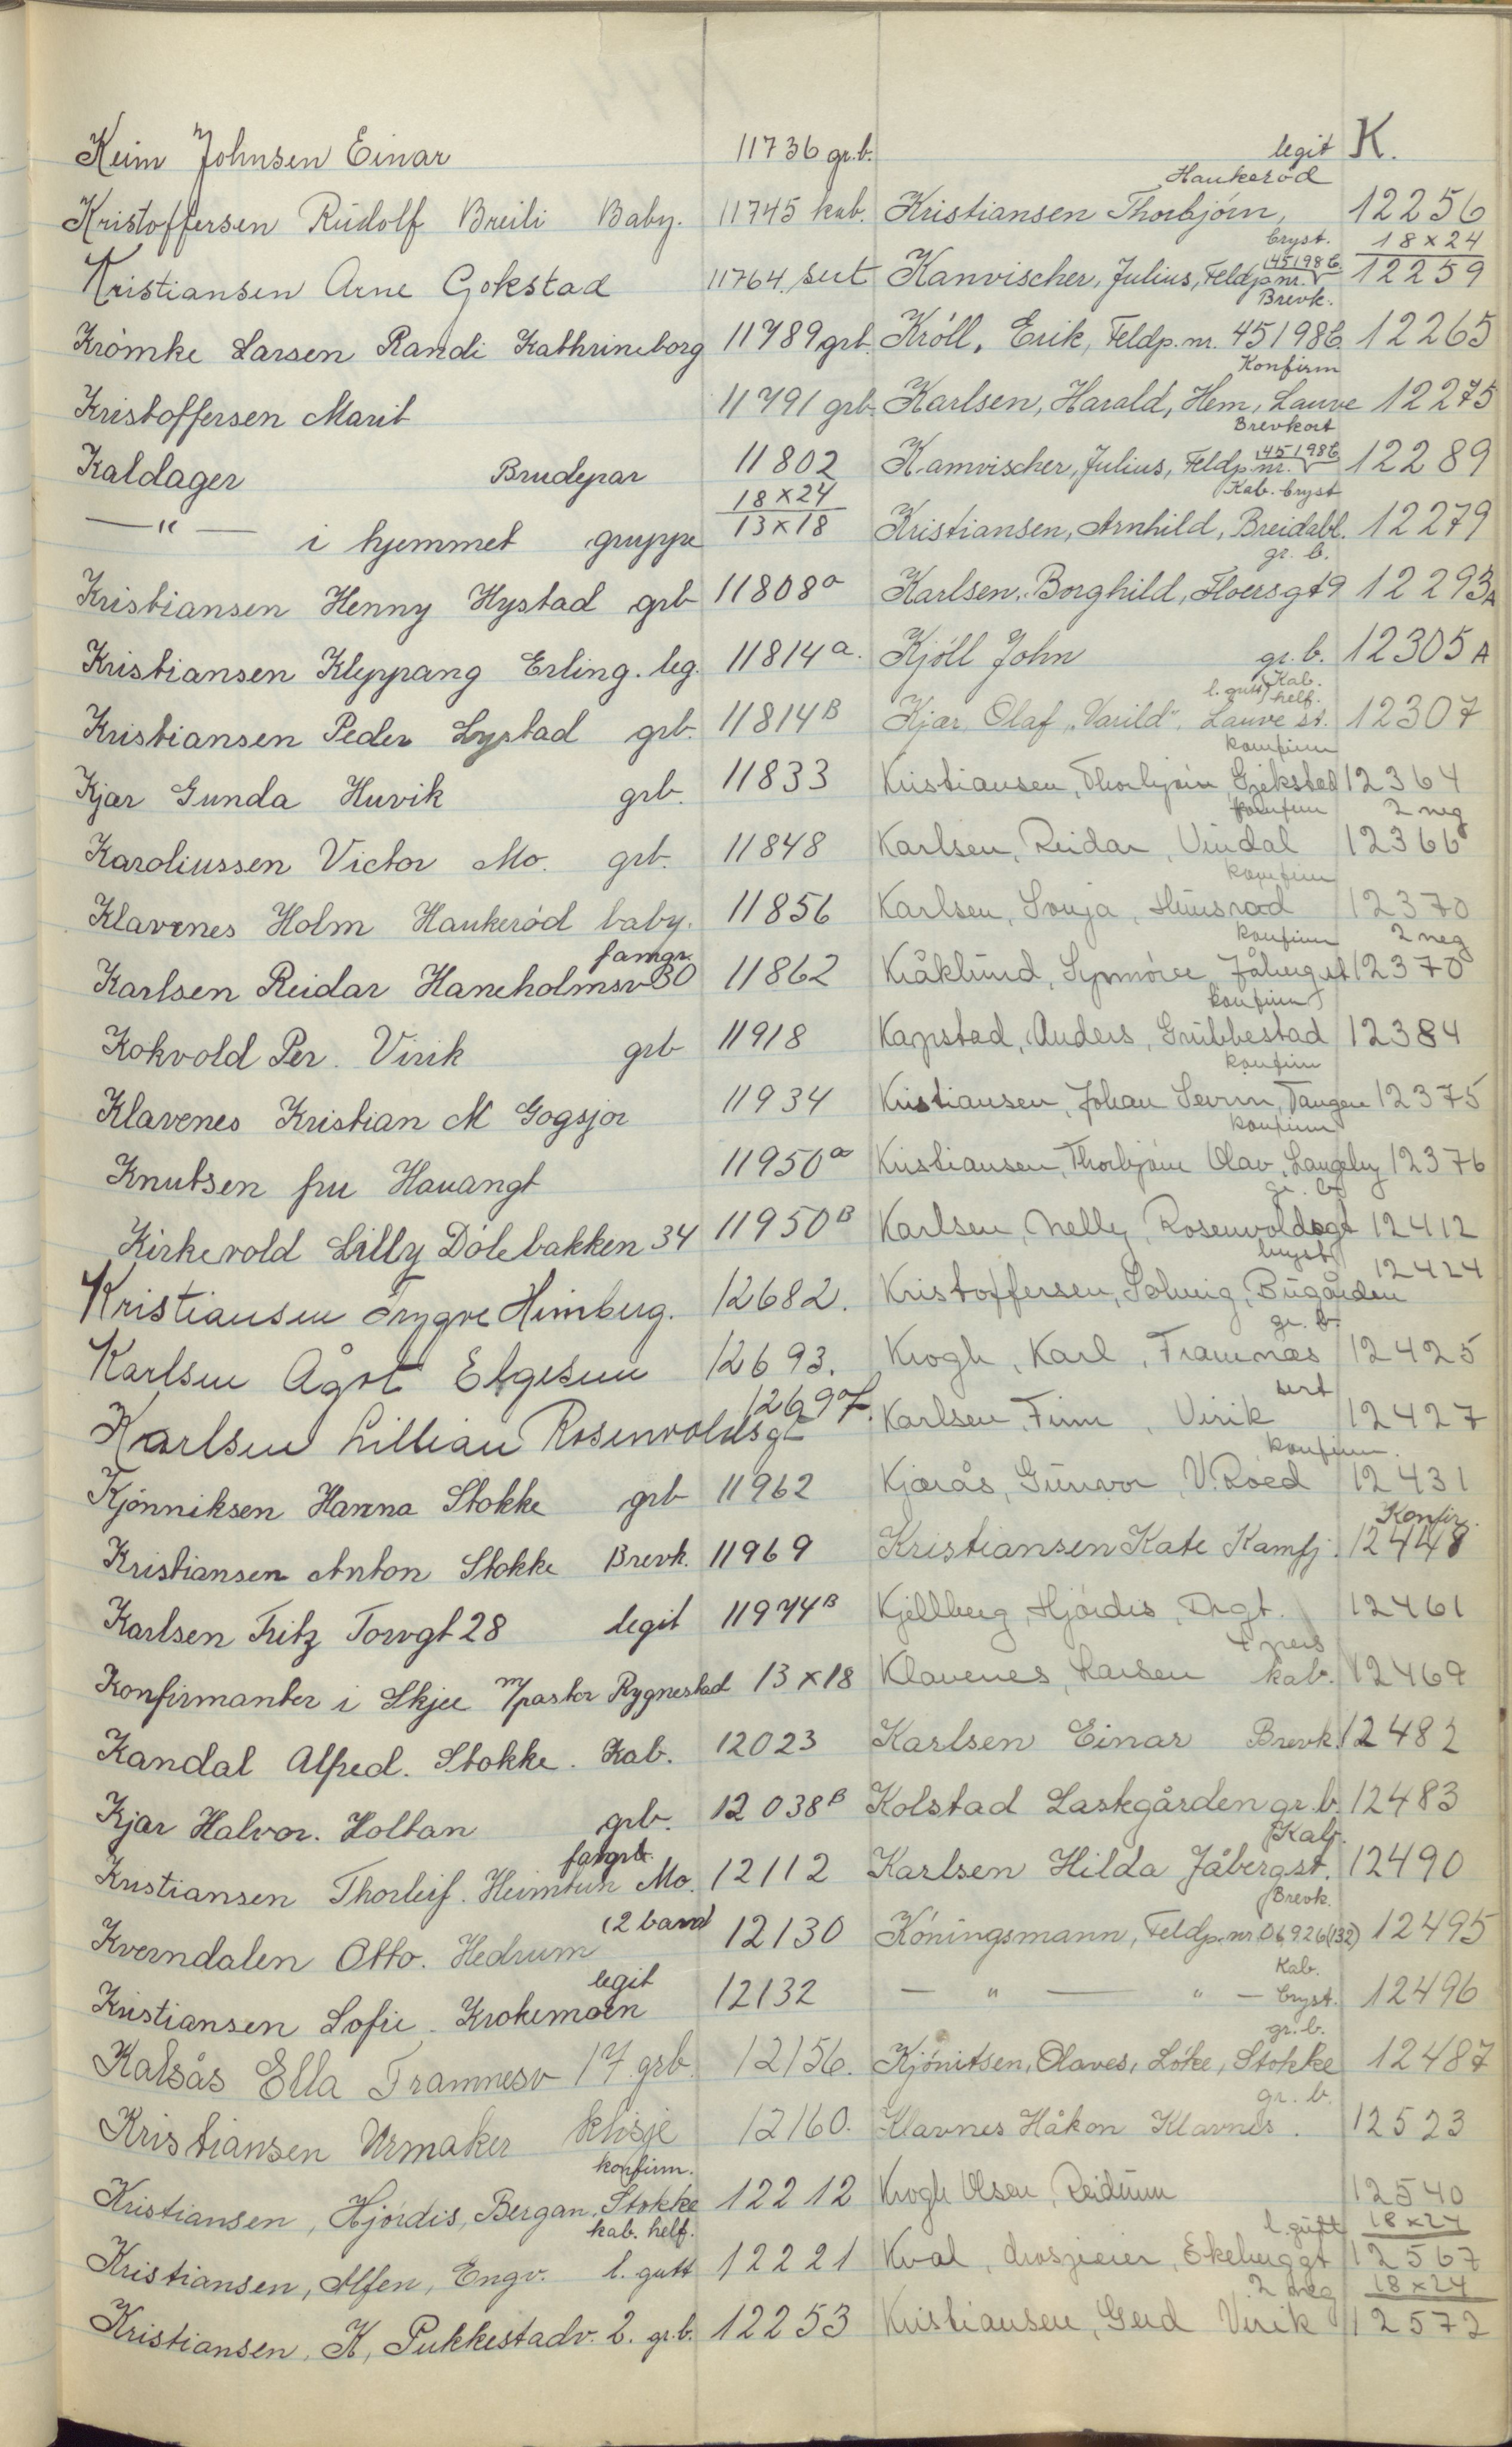 K.
Keim Johnsen Einar 11736 gr.b.
Kristoffersen Rudolf Breili Baby. 11745 kab.
Kristiansen Arne Gokstad 11764 sert
Krömke Larsen Randi Kathrineborg 11789 grb.
Kristoffersen Marit 11791 grb.
Kaldager Brudepar 11802
18x24
—"— i hjemmet gruppe 13x18
Kristiansen Henny Hystad grb 11808a
Kristiansen Kleppang Erling. leg. 11814a.
Kristiansen Peder Lystad grb. 11814B
Kjær Gunda Huvik grb. 11833
Karoliussen Victor Mo. grb. 11848
Klavenes Holm Haukerød baby. 11856
famgr.
Karlsen Reidar Haneholmsv 30 11862
Kokvold Per. Virik grb 11918
Klavenes Kristian M Gogsjor 11934
Knutsen fru Hauangt 11950a
Kirkevold Lilly Dölebakken 34 11950B
Kristiansen Trygve Himberg. 12682.
Karlsen Ågot Elgesem 12693.
Karlsen Lillian Rosenvoldsgt 12697.
Kjönniksen Hanna Stokke grb 11962
Kristiansen Anton Stokke Brevk. 11969
Karlsen Fritz Torvgt 28 legit 11974B
Konfirmanter i Skjee m/pastor Rygnestad 13x18
Kandal Alfred. Stokke. Kab. 12023
Kjær Halvor. Holtan grb. 12038B
famgrb.
Kristiansen Thorleif. Heimtun Mo. 12112
(2 barn)
Kverndalen Otto. Hedrum 12130
legit
Kristiansen Sofie. Krokemoen 12132
Kalsås Ella Framnesv 17 grb. 12156.
Kristiansen Urmaker klisje 12160.
konfirm.
Kristiansen, Hjördis, Bergan, Stokke 12212
kab. helf.
Kristiansen, Alfen, Engv. l. gutt 12221
Kristiansen, K, Pukkestadv. 2. gr.b. 12253
legit
Haukeröd
Kristiansen Thorbjörn, 12256
bryst. 18x24
Kanvischer, Julius, Feldp.nr. 45198B 12259
Brevk.
Kröll, Erik, Feldp. nr. 45198B. 12265
Konfirm
Karlsen, Harald, Hem, Lauve 12275
Brevkort
Kamvischer, Julius, Feldp.nr. 45198B 12289
Kab. bryst
Kristiansen, Arnhild, Breidabl. 12279
gr. b.
Karlsen, Borghild, Floersgt 9 12293A
Kjöll John gr. b. 12305A
Kab.
l. gutt helf.
Kjær, Olaf "Varild", Lauve st. 12307
konfirm
Kristiansen, Thorbjörn, Gjekstad 12364
konfirm 2 neg
Karlsen, Reidar, Vindal 12366
konfirm
Karlsen, Sonja, Hunsrød 12370
konfirm 2 neg
Kråklund, Synnöve, Jåbergst 12370
konfirm
Kapstad, Anders, Grubbestad 12384
konfirm
Kristiansen, Johan Severin, Tangen 12375
konfirm
Kristiansen, Thorbjörn Olav, Langeby 12376
gr. b.
Karlsen, Nelly, Rosenvoldsgt 12412
bryst
Kristoffersen, Solveig, Bugården 12424
gr. b.
Krogh, Karl, Framnæs 12425
sert
Karlsen, Finn, Virik 12427
konfirm.
Kjærås, Gunvor, V. Röed 12431
Konfir.
Kristiansen Kate Kamfj. 12448
Kjellberg, Hjördis, Drgt. 12461
4 pers
Klavenes, Larsen kab. 12469
Karlsen Einar Brevk. 12482
Kolstad Laskgården gr.b. 12483
Kab.
Karlsen Hilda Jåbergst. 12490
Brevk.
Köningsmann, Feldp.nr 06926(132) 12495
Kab.
— " — " — bryst. 12496
gr. b.
Kjönitsen, Olaves, Löke, Stokke 12487
gr. b.
Klavnes Håkon Klavnes. 12523
Krogh Olsen, Reidunn 12540
l. gutt 18x24
Kval, drosjeeier, Ekebergt 12567
2 neg 18x24
Kristiansen, Gerd Virik 12572